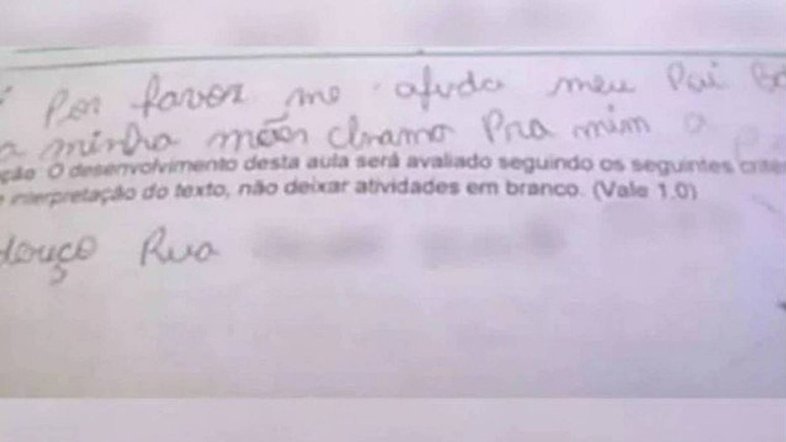 Por favor me ajuda meu Pai
a minha mãen chramo Pra mim a
ção O desenvolvimento desta aula será avaliado seguindo os seguintes crite
interpretação do texto, não deixar atividades em branco. (Vale 1.0)
louço Rua